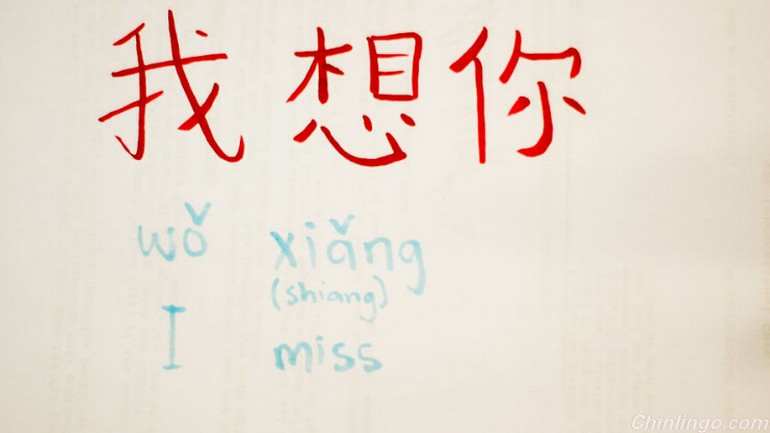 我想你
wǒ xiǎng
(shiang)
I miss
Chinlingo.com